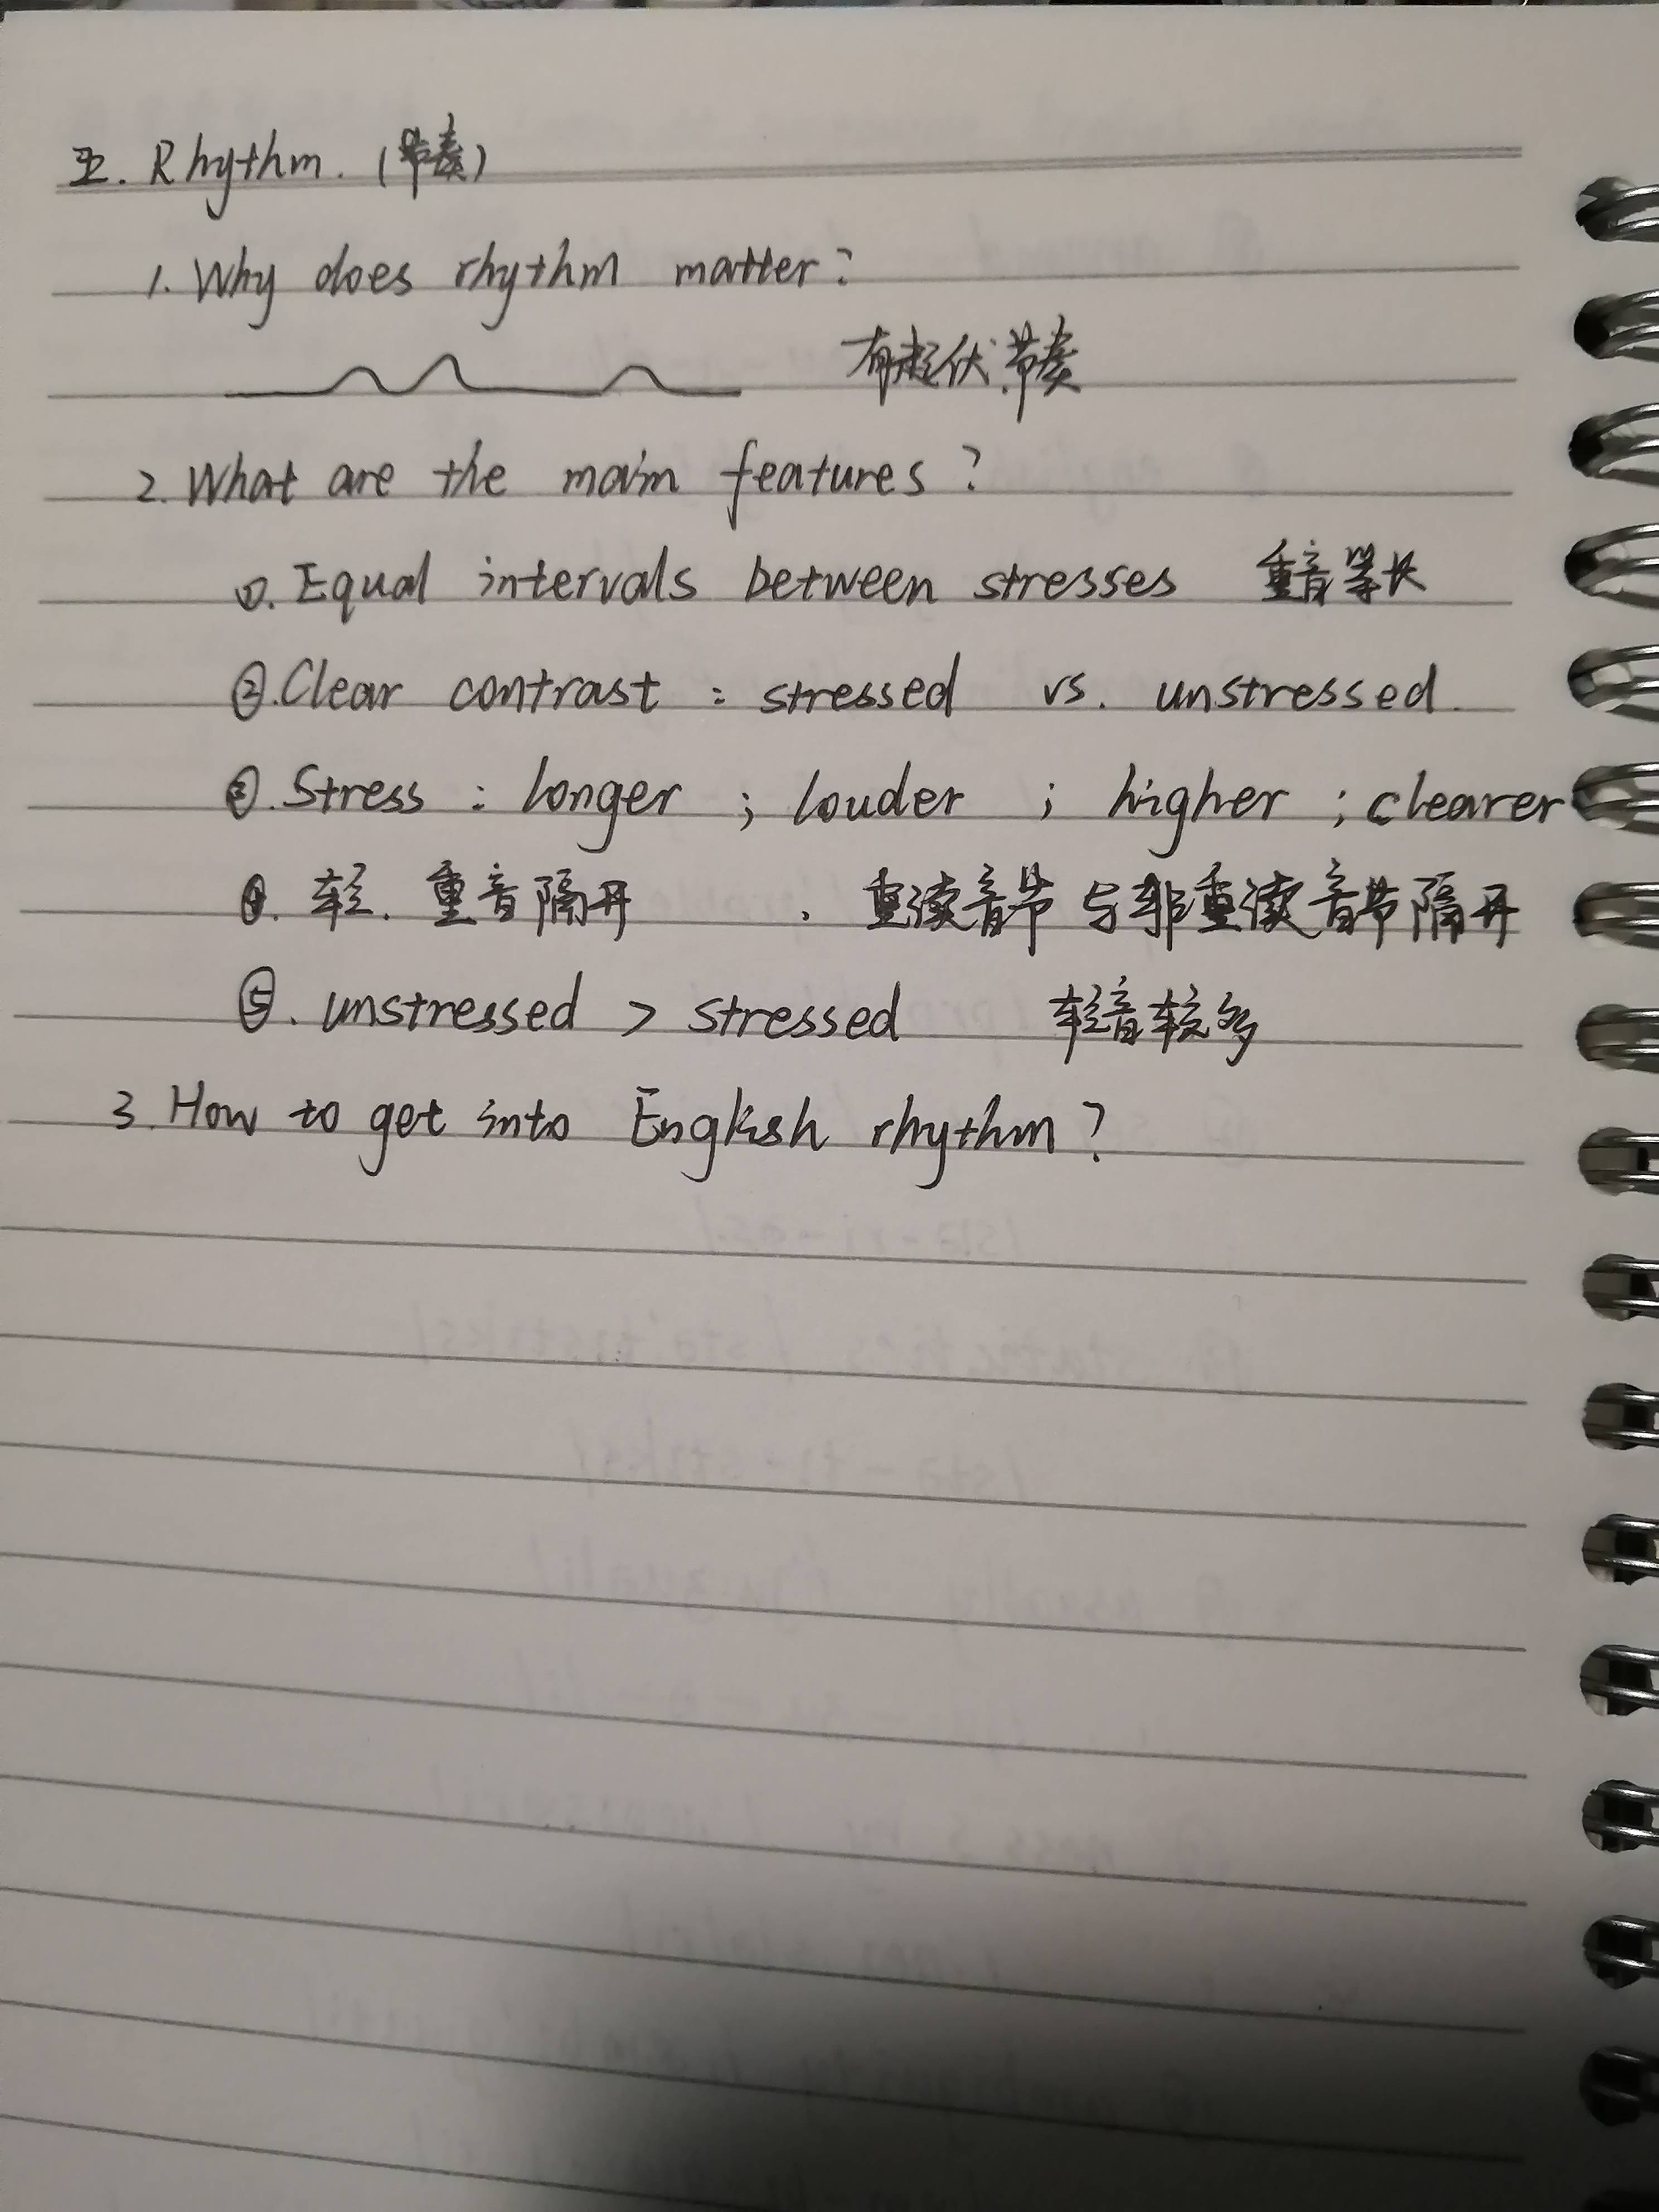 五. Rhythm. (节奏)
1. Why does rhythm matter?
有起伏、节奏
2. What are the main features?
①. Equal intervals between stresses 重音等长
②. Clear contrast : stressed vs. unstressed.
③. Stress : longer ; louder ; higher ; clearer
④. 轻. 重音隔开 . 重读音节与非重读音节隔开
⑤. unstressed > stressed 轻音较多
3. How to get into English rhythm?